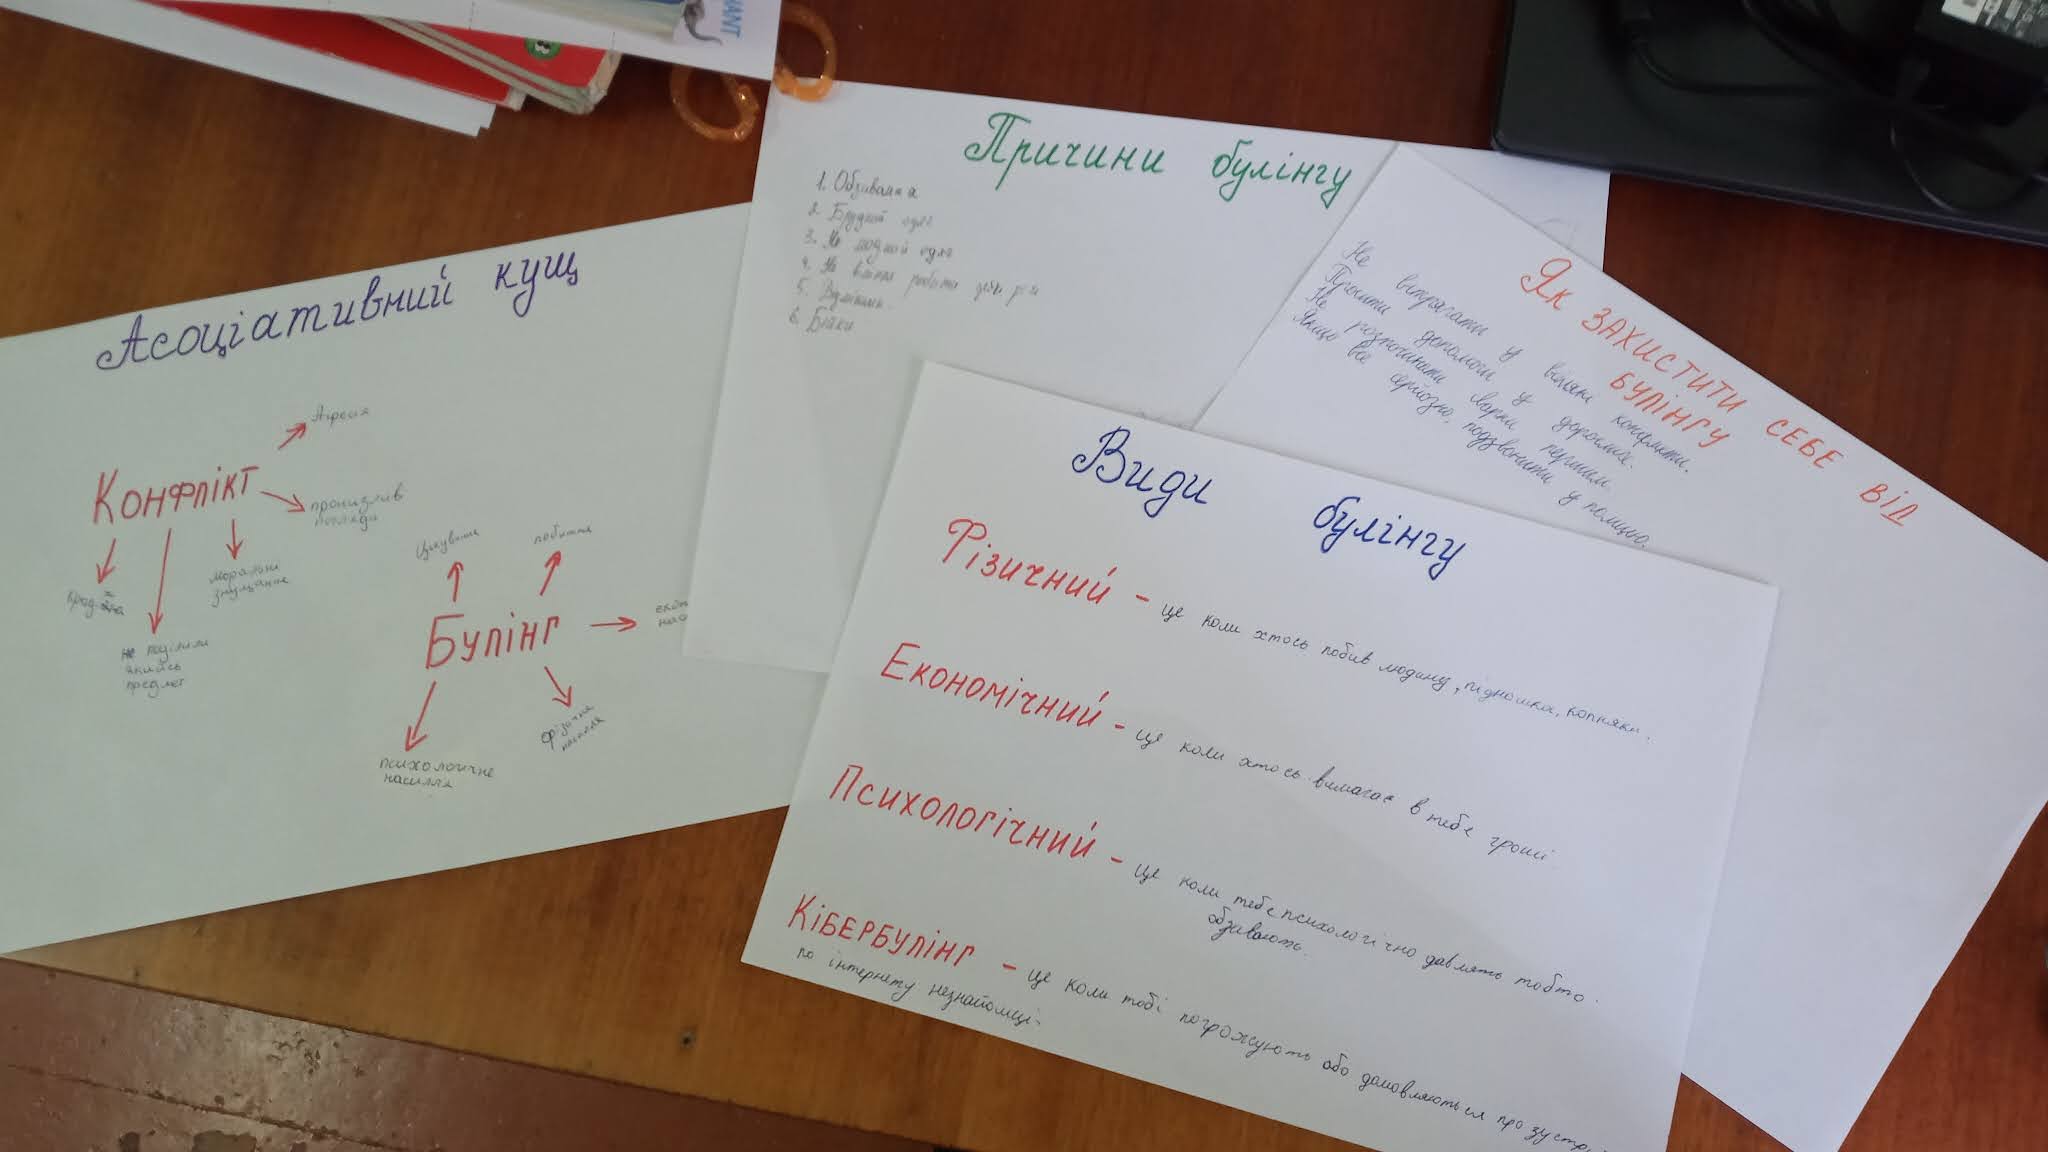 Асоціативний кущ
Конфлікт
Агресія
пронизлив
погляди
моральні
знущання
не поцілили
якийсь
предмет
Булінг
Цькування
побиття
фізична
насилля
психологічне
насилля
Причини булінгу
1. Обзивання
2. Брудний одяг
3. Не модний одяг
4. Не
5.
6. Бійки
Як захистити себе від
булінгу
Не встрягати у великі конфлікти.
Просити допомоги у дорослих.
Не розпочинати сварки першим.
Якщо все серйозно, подзвонити у поліцію.
Види булінгу
Фізичний - це коли хтось побив людину, підножки, копняки.
Економічний - це коли хтось вимагає в тебе гроші.
Психологічний - це коли тебе психологічно давлять тобто
обзивають.
Кібербулінг - це коли тобі погрожують або домовляються про зустр
по інтернету незнайомці.